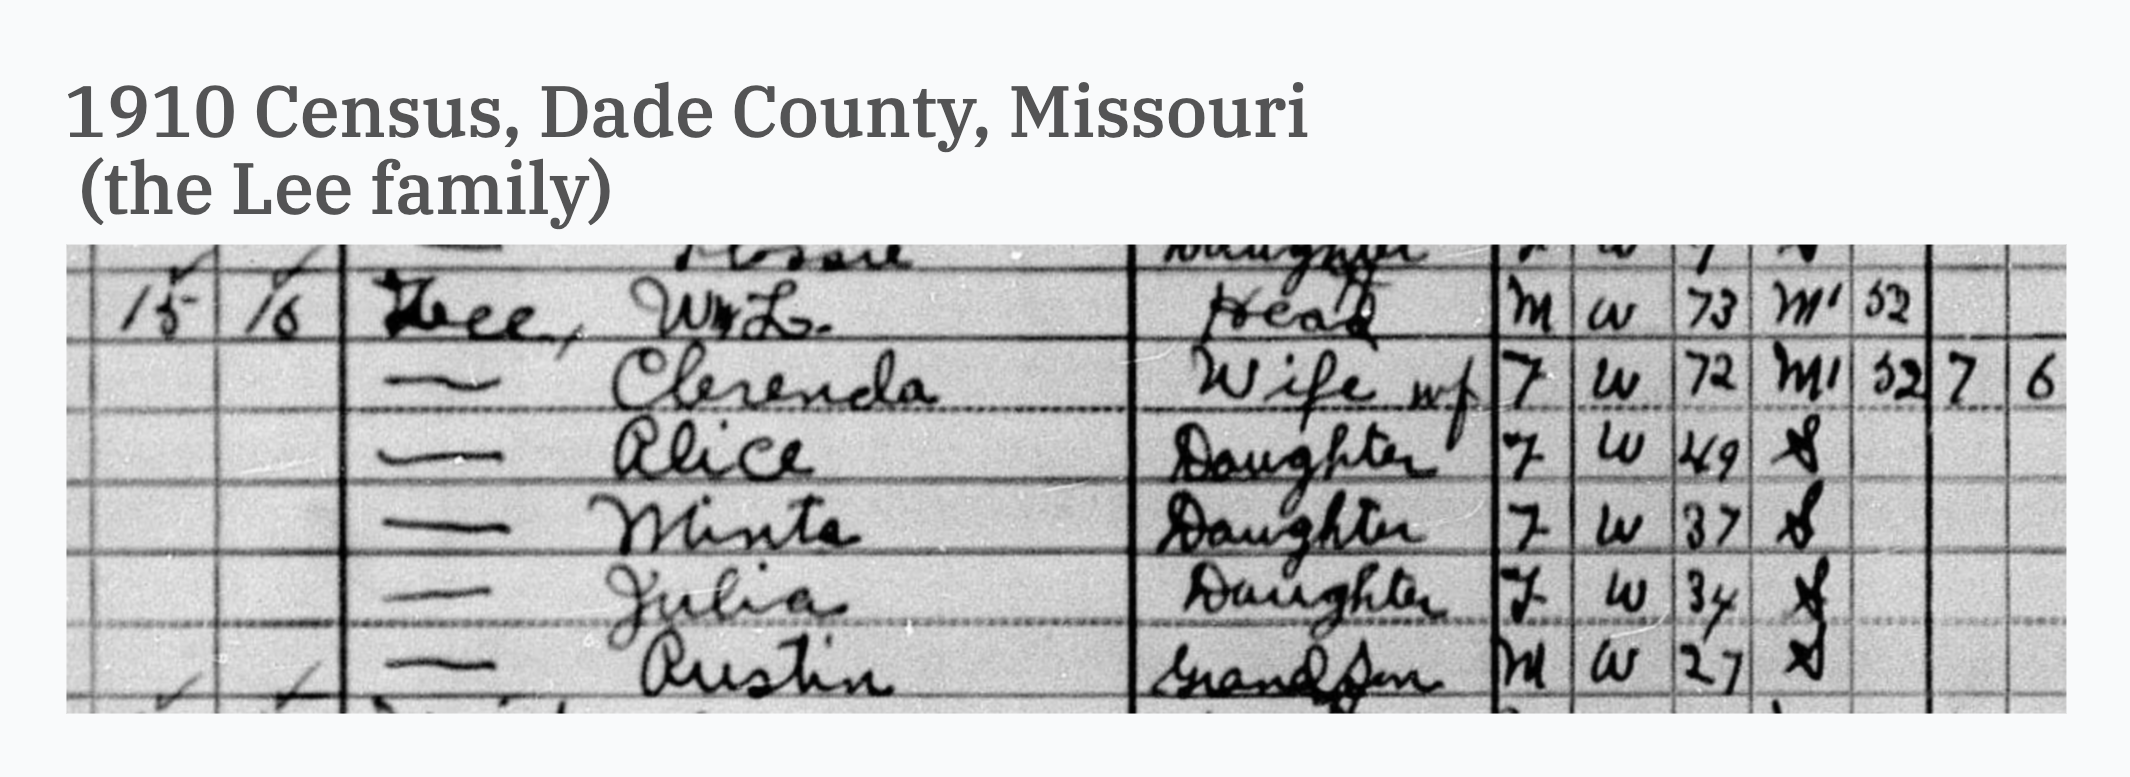 1910 Census, Dade County, Missouri
(the Lee family)
Daughter F W 7 S
15 16 Lee, Wm L. Head M W 73 M1 52
— Clerenda Wife wf F W 72 M1 52 7 6
— Alice Daughter F W 49 S
— Minta Daughter F W 37 S
— Julia Daughter F W 34 S
— Austin Grand Son M W 27 S